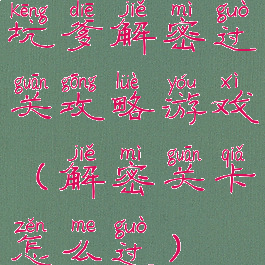 kēng diē jiě mì guò
坑爹解密过
guān gōng lüè yóu xì
关攻略游戏
jiě mì guān qiǎ
(解密关卡
zěn me guò
怎么过)